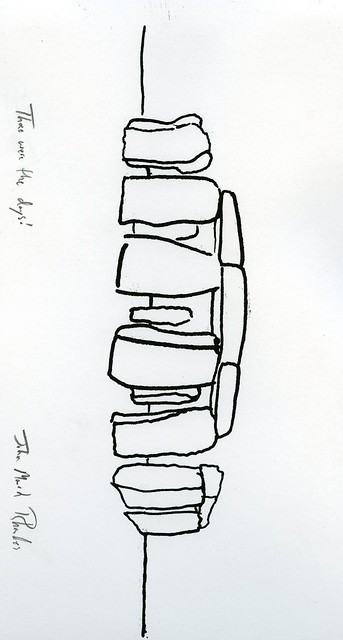 Those were the days!
John Mark Rhodes